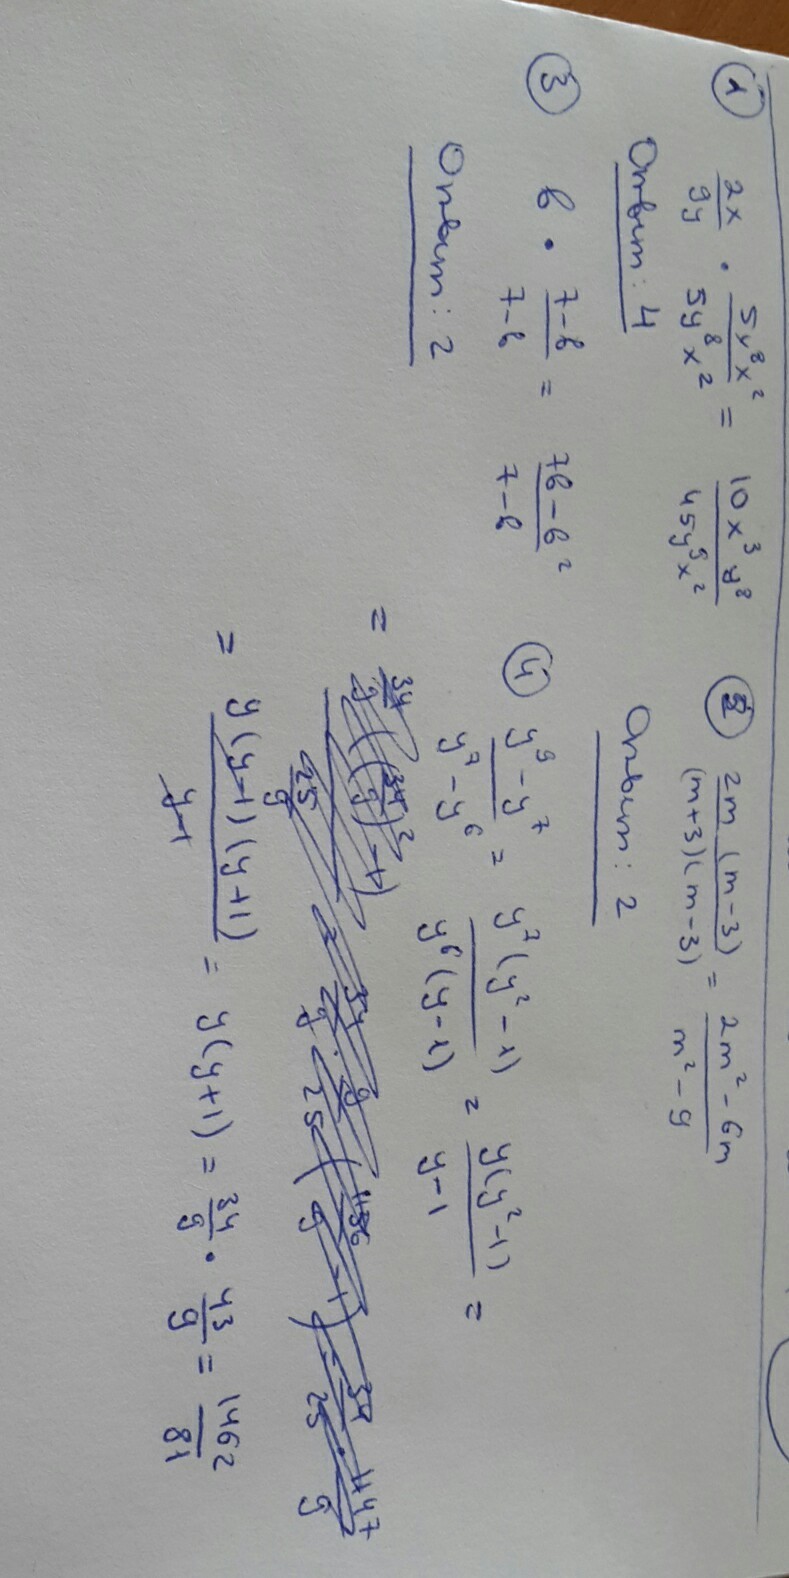 ① 2x/9y · 5y⁸x²/5y⁸x² = 10x³y⁸/45y⁹x²
Ответ: 4
② 2m(m-3)/(m+3)(m-3) = 2m²-6m/m²-9
Ответ: 2
③ b · 7-b/7-b = 7b-b²/7-b
Ответ: 2
④ y⁹-y⁷/y⁷-y⁶ = y⁷(y²-1)/y⁶(y-1) = y(y²-1)/y-1 =
= y(y-1)(y+1)/y-1 = y(y+1) = 34/9 · 43/9 = 1462/81